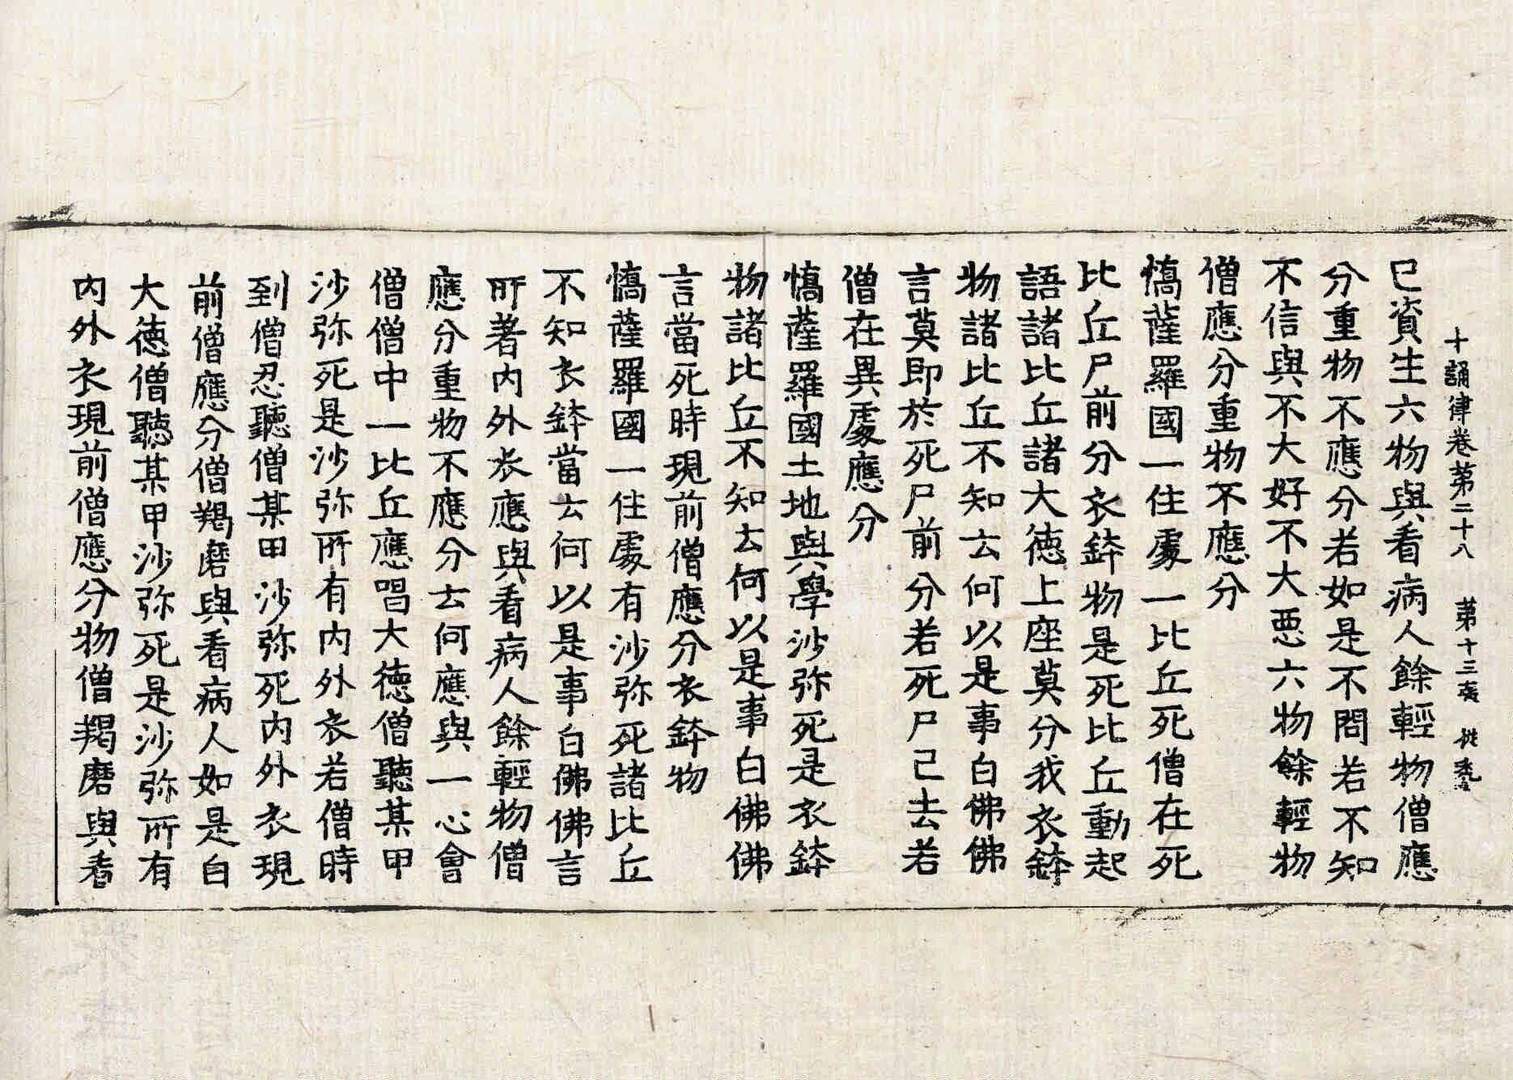 十誦律卷苐二十八　苐十三張
已資生六物與看病人餘輕物僧應
分重物不應分若如是不問若不知
不信與不大好不大惡六物餘輕物
僧應分重物不應分
憍薩羅國一住處一比丘死僧在死
比丘尸前分衣鉢物是死比丘動起
語諸比丘諸大德上座莫分我衣鉢
物諸比丘不知云何以是事白佛佛
言莫即於死尸前分若死尸已去若
僧在異處應分
憍薩羅國土地與學沙弥死是衣鉢
物諸比丘不知云何以是事白佛佛
言當死時現前僧應分衣鉢物
憍薩羅國一住處有沙弥死諸比丘
不知衣鉢當云何以是事白佛佛言
所著內外衣應與看病人餘輕物僧
應分重物不應分云何應與一心會
僧僧中一比丘應唱大德僧聽某甲
沙弥死是沙弥所有內外衣若僧時
到僧忍聽僧某甲沙弥死內外衣現
前僧應分僧羯磨與看病人如是白
大德僧聽某甲沙弥死是沙弥所有
內外衣現前僧應分物僧羯磨與看